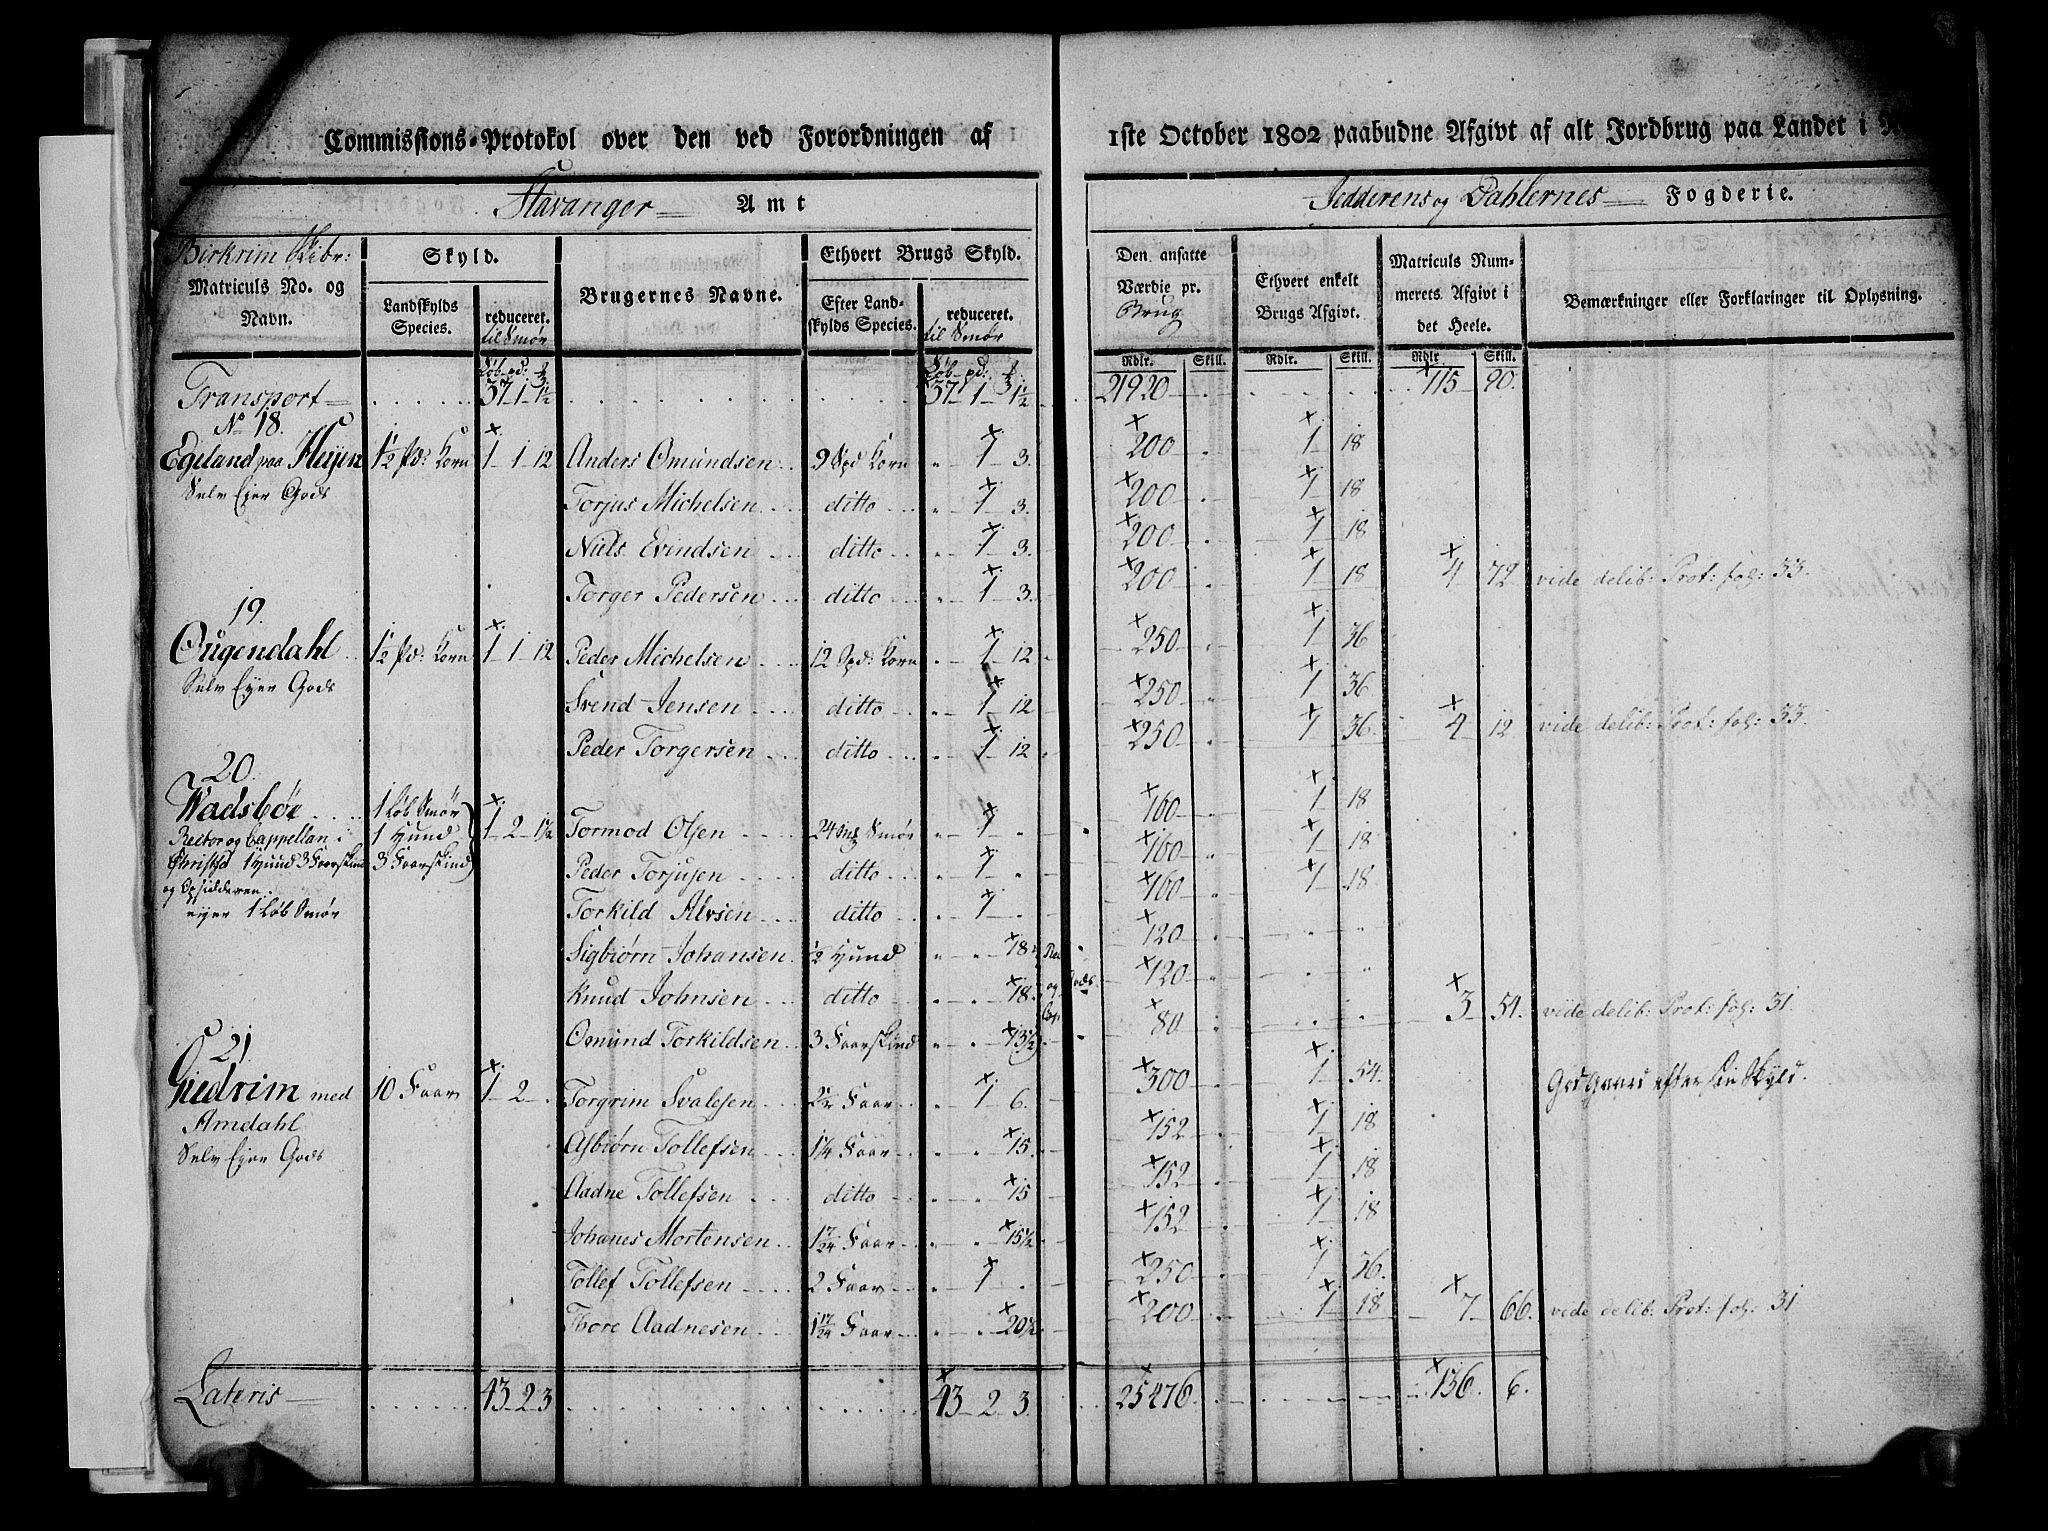 Commissions-Protokol over den ved Forordningen af 1ste October 1802 paabudne Afgivt af alt Jordbrug paa Landet i
Stavanger Amt Jedderens og Dahlernes Fogderie.
Birkrim Skibr:
Matriculs No. og Navn.
Skyld.
Landskylds Species.
reduceret. til Smør
Brugernes Navne.
Ethvert Brugs Skyld.
Efter Landskylds Species.
reduceret. til Smør
Den ansatte Værdie pr. Brug
Ethvert enkelt Brugs Afgivt.
Matriculs Nummerets Afgivt i det Heele.
Bemærkninger eller Forklaringer til Oplysning.
Løb pd: Løb pd: Rdlr. Skill. Rdlr. Skill. Rdlr Skill.
Transport 37 1 1½ 37 1 1½ 21920 115 90.
No 18.
Egeland paa Heyen 1½ Pd: Korn 1 1 12 Anders Omundsen 9 Spd Korn " 1 3. 200 1 18
Selv Eyer Gods Torjus Michelsen ditto " 1 3. 200 1 18
Niels Evindsen ditto " 1 3. 200 1 18
Torger Pedersen ditto " 1 3. 200 1 18 4 72 vide delib: Prot: fol: 33.
19.
Ougendahl 1½ Pd: Korn 1 1 12 Peder Michelsen 12 Spd: Korn " 1 12 250 1 36
Selv Eyer Gods Svend Jensen ditto " 1 12 250 1 36
Peder Torgersen ditto " 1 12 250 1 36. 4 12 vide delib: Prot: fol: 33.
20.
Wadsbøe 1 Løb Smør
Rector og Cappellan i 1 Hund 1 2 1½ Tormod Olsen 24 Mk Smør " 1 " 160 1 18
Christsd 1 Hund 3 Faarskind 3 Faarskind Peder Torjusen ditto " 1 " 160 1 18
og Opsidderen
eyer 1 Løb Smør Torkild Alvsen ditto " 1 " 160 1 18
Sigbiørn Johansen ½ Hund " " 18 120
Knud Johnsen ditto " " 18. og Gods. 120
Omund Torkildsen 3 Faarskind " " 13½ 80 3 54. vide delib: Prot: fol: 31.
21.
Giedrim med 10 Faar 1 2 Torgrim Svalesen 2½ Faar " 1 6. 300 1 54.
Amdahl Asbiørn Tollefsen 1¼ Faar " " 15. 152 1 18
Selv Eyer Gods Aadne Tollefsen ditto " " 15 152 1 18
Johanes Mortensen 1 7/24 Faar " " 15½ 152 1 18
Tollef Tollefsen 2 Faar " 1 " 250 1 36.
Thore Aadnesen 1 17/24 Faar " " 20½ 200 1 18 7 66. vide delib: Prot: fol: 31
Lateris 43 2 3 43 2 3. 25476 136. 6.